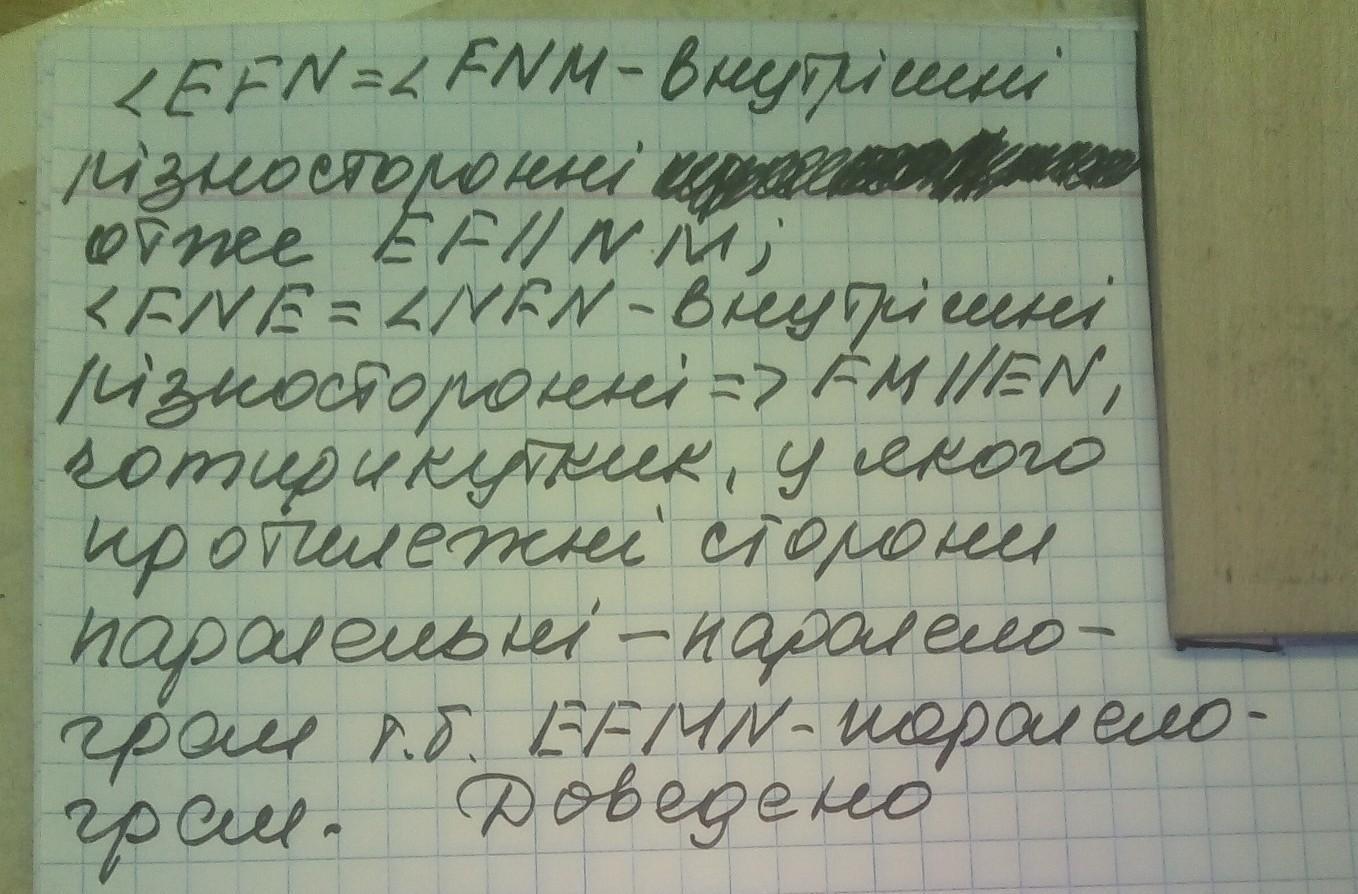 <EFN=<FNM-внутрішні
різносторонні
отже EF//NM;
<FNE=<NFN-внутрішні
різносторонні=>FM//EN,
чотирикутник, у якого
протилежні сторони
паралельні-парало-
грам т.б. EFMN-парало-
грам. Доведено